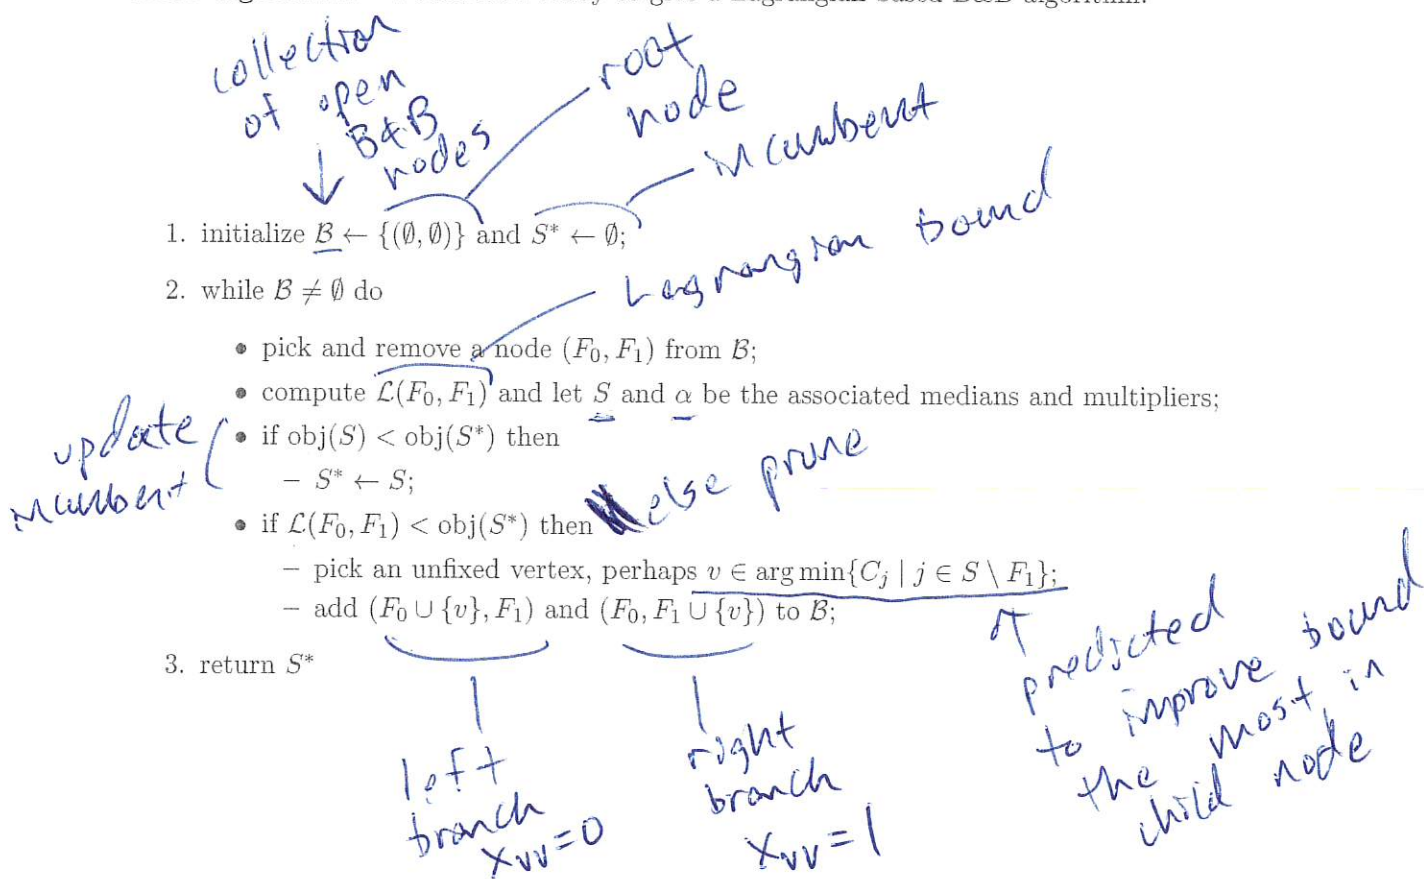 collection
of open
B&B
nodes
root
node
incumbent
1. initialize ℬ ← {(∅, ∅)} and S* ← ∅;
Lagrangian bound
2. while ℬ ≠ ∅ do
• pick and remove a node (F₀, F₁) from ℬ;
• compute ℒ(F₀, F₁) and let S and α be the associated medians and multipliers;
update
incumbent
• if obj(S) < obj(S*) then
– S* ← S;
else prune
• if ℒ(F₀, F₁) < obj(S*) then
– pick an unfixed vertex, perhaps v ∈ arg min{Cⱼ | j ∈ S \ F₁};
– add (F₀ ∪ {v}, F₁) and (F₀, F₁ ∪ {v}) to ℬ;
3. return S*
left
branch
xvv=0
right
branch
xvv=1
predicted
to improve bound
the most in
child node